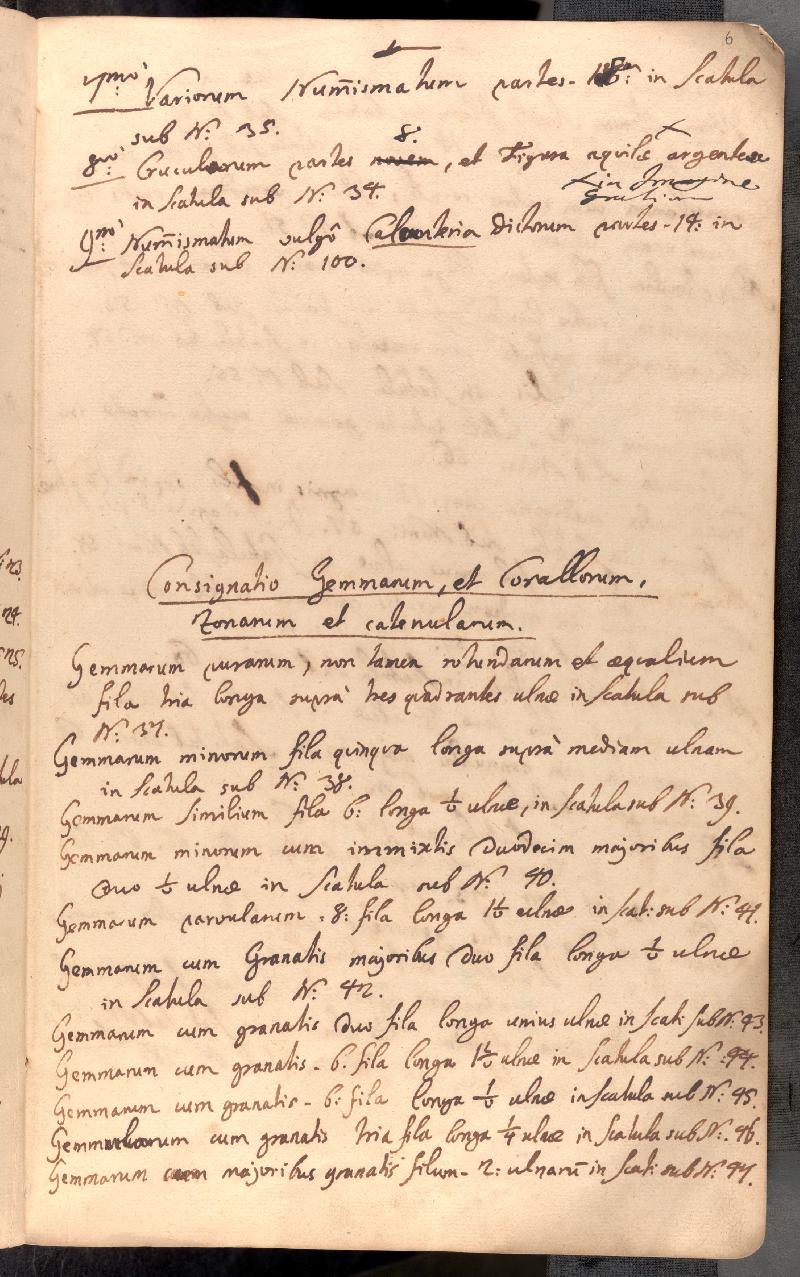 6
7mo: Variorum Num̄ismatum partes - 18: in Scatula
sub N: 35.
8vo: Crucularum partes novem 8., et Figura aquilæ argenteæ
in Scatula sub N: 34. × in Imagine
9mo: Num̄ismatum vulgô Calanteria dictorum partes - 14: in
Scatula sub N: 100.
Consignatio Gemmarum, et Corallorum,
Zonarum et catenularum.
Gemmarum purarum, non tamen rotundarum et æqualium
fila tria longa suprà tres quadrantes ulnæ in Scatula sub
N: 37.
Gemmarum minorum fila quinque longa suprà mediam ulnam
in Scatula sub N: 38.
Gemmarum similium fila 6: longa ½ ulnæ, in Scatula sub N: 39.
Gemmarum minorum cum immixtis duodecim majoribus fila
duo ½ ulnæ in Scatula sub N: 40.
Gemmarum parvularum . 8: fila longa 1½ ulnæ in Scat: sub N: 41.
Gemmarum cum Granatis majoribus duo fila longa ½ ulnæ
in Scatula sub N: 42.
Gemmarum cum granatis duo fila longa unius ulnæ in Scat: sub N: 43.
Gemmarum cum granatis - 6. fila longa 1½ ulnæ in Scatula sub N: 44.
Gemmarum cum granatis - 6: fila longa ½ ulnæ in Scatula sub N: 45.
Gemmularum cum granatis tria fila longa ¼ ulnæ in Scatula sub N: 46.
Gemmarum cum majoribus granatis filum - 2: ulnarū in Scat: sub N: 47.